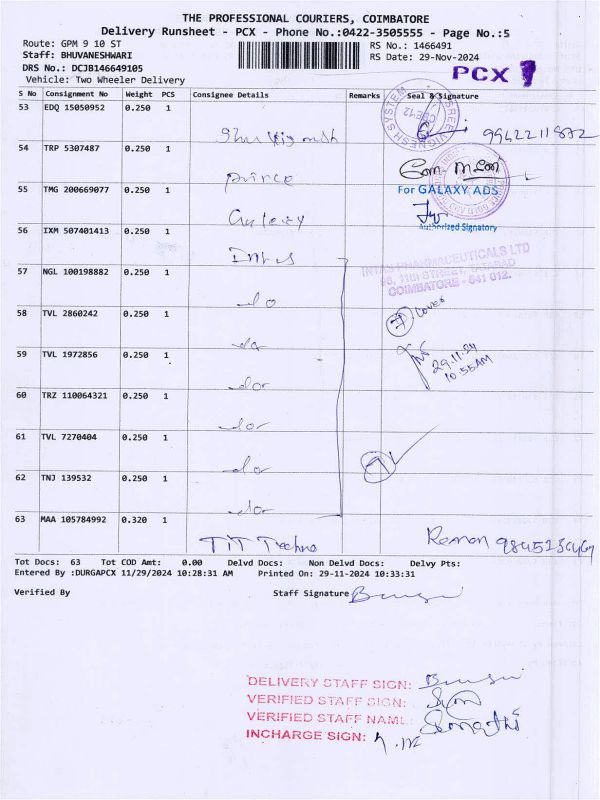 THE PROFESSIONAL COURIERS, COIMBATORE
Delivery Runsheet - PCX - Phone No.:0422-3505555 - Page No.:5
Route: GPM 9 10 ST
RS No.: 1466491
Staff: BHUVANESHWARI
RS Date: 29-Nov-2024
DRS No.: DCJB146649105
PCX
Vehicle: Two Wheeler Delivery
S No Consignment No Weight PCS Consignee Details Remarks Seal & Signature
53 EDQ 15050952 0.250 1
54 TRP 5307487 0.250 1
prince
55 TMG 200669077 0.250 1
For GALAXY ADS
Galaxy
Authorized Signatory
56 IXM 507401413 0.250 1
57 NGL 100198882 0.250 1
COIMBATORE - 641 012.
do
58 TVL 2860242 0.250 1
7 Cover
59 TVL 1972856 0.250 1
29.11.24
10:55AM
60 TRZ 110064321 0.250 1
61 TVL 7270404 0.250 1
62 TNJ 139532 0.250 1
63 MAA 105784992 0.320 1
TIT Techno
Tot Docs: 63 Tot COD Amt: 0.00 Delvd Docs: Non Delvd Docs: Delvy Pts:
Entered By :DURGAPCX 11/29/2024 10:28:31 AM Printed On: 29-11-2024 10:33:31
Verified By Staff Signature
DELIVERY STAFF SIGN:
VERIFIED STAFF SIGN:
VERIFIED STAFF NAME
INCHARGE SIGN: